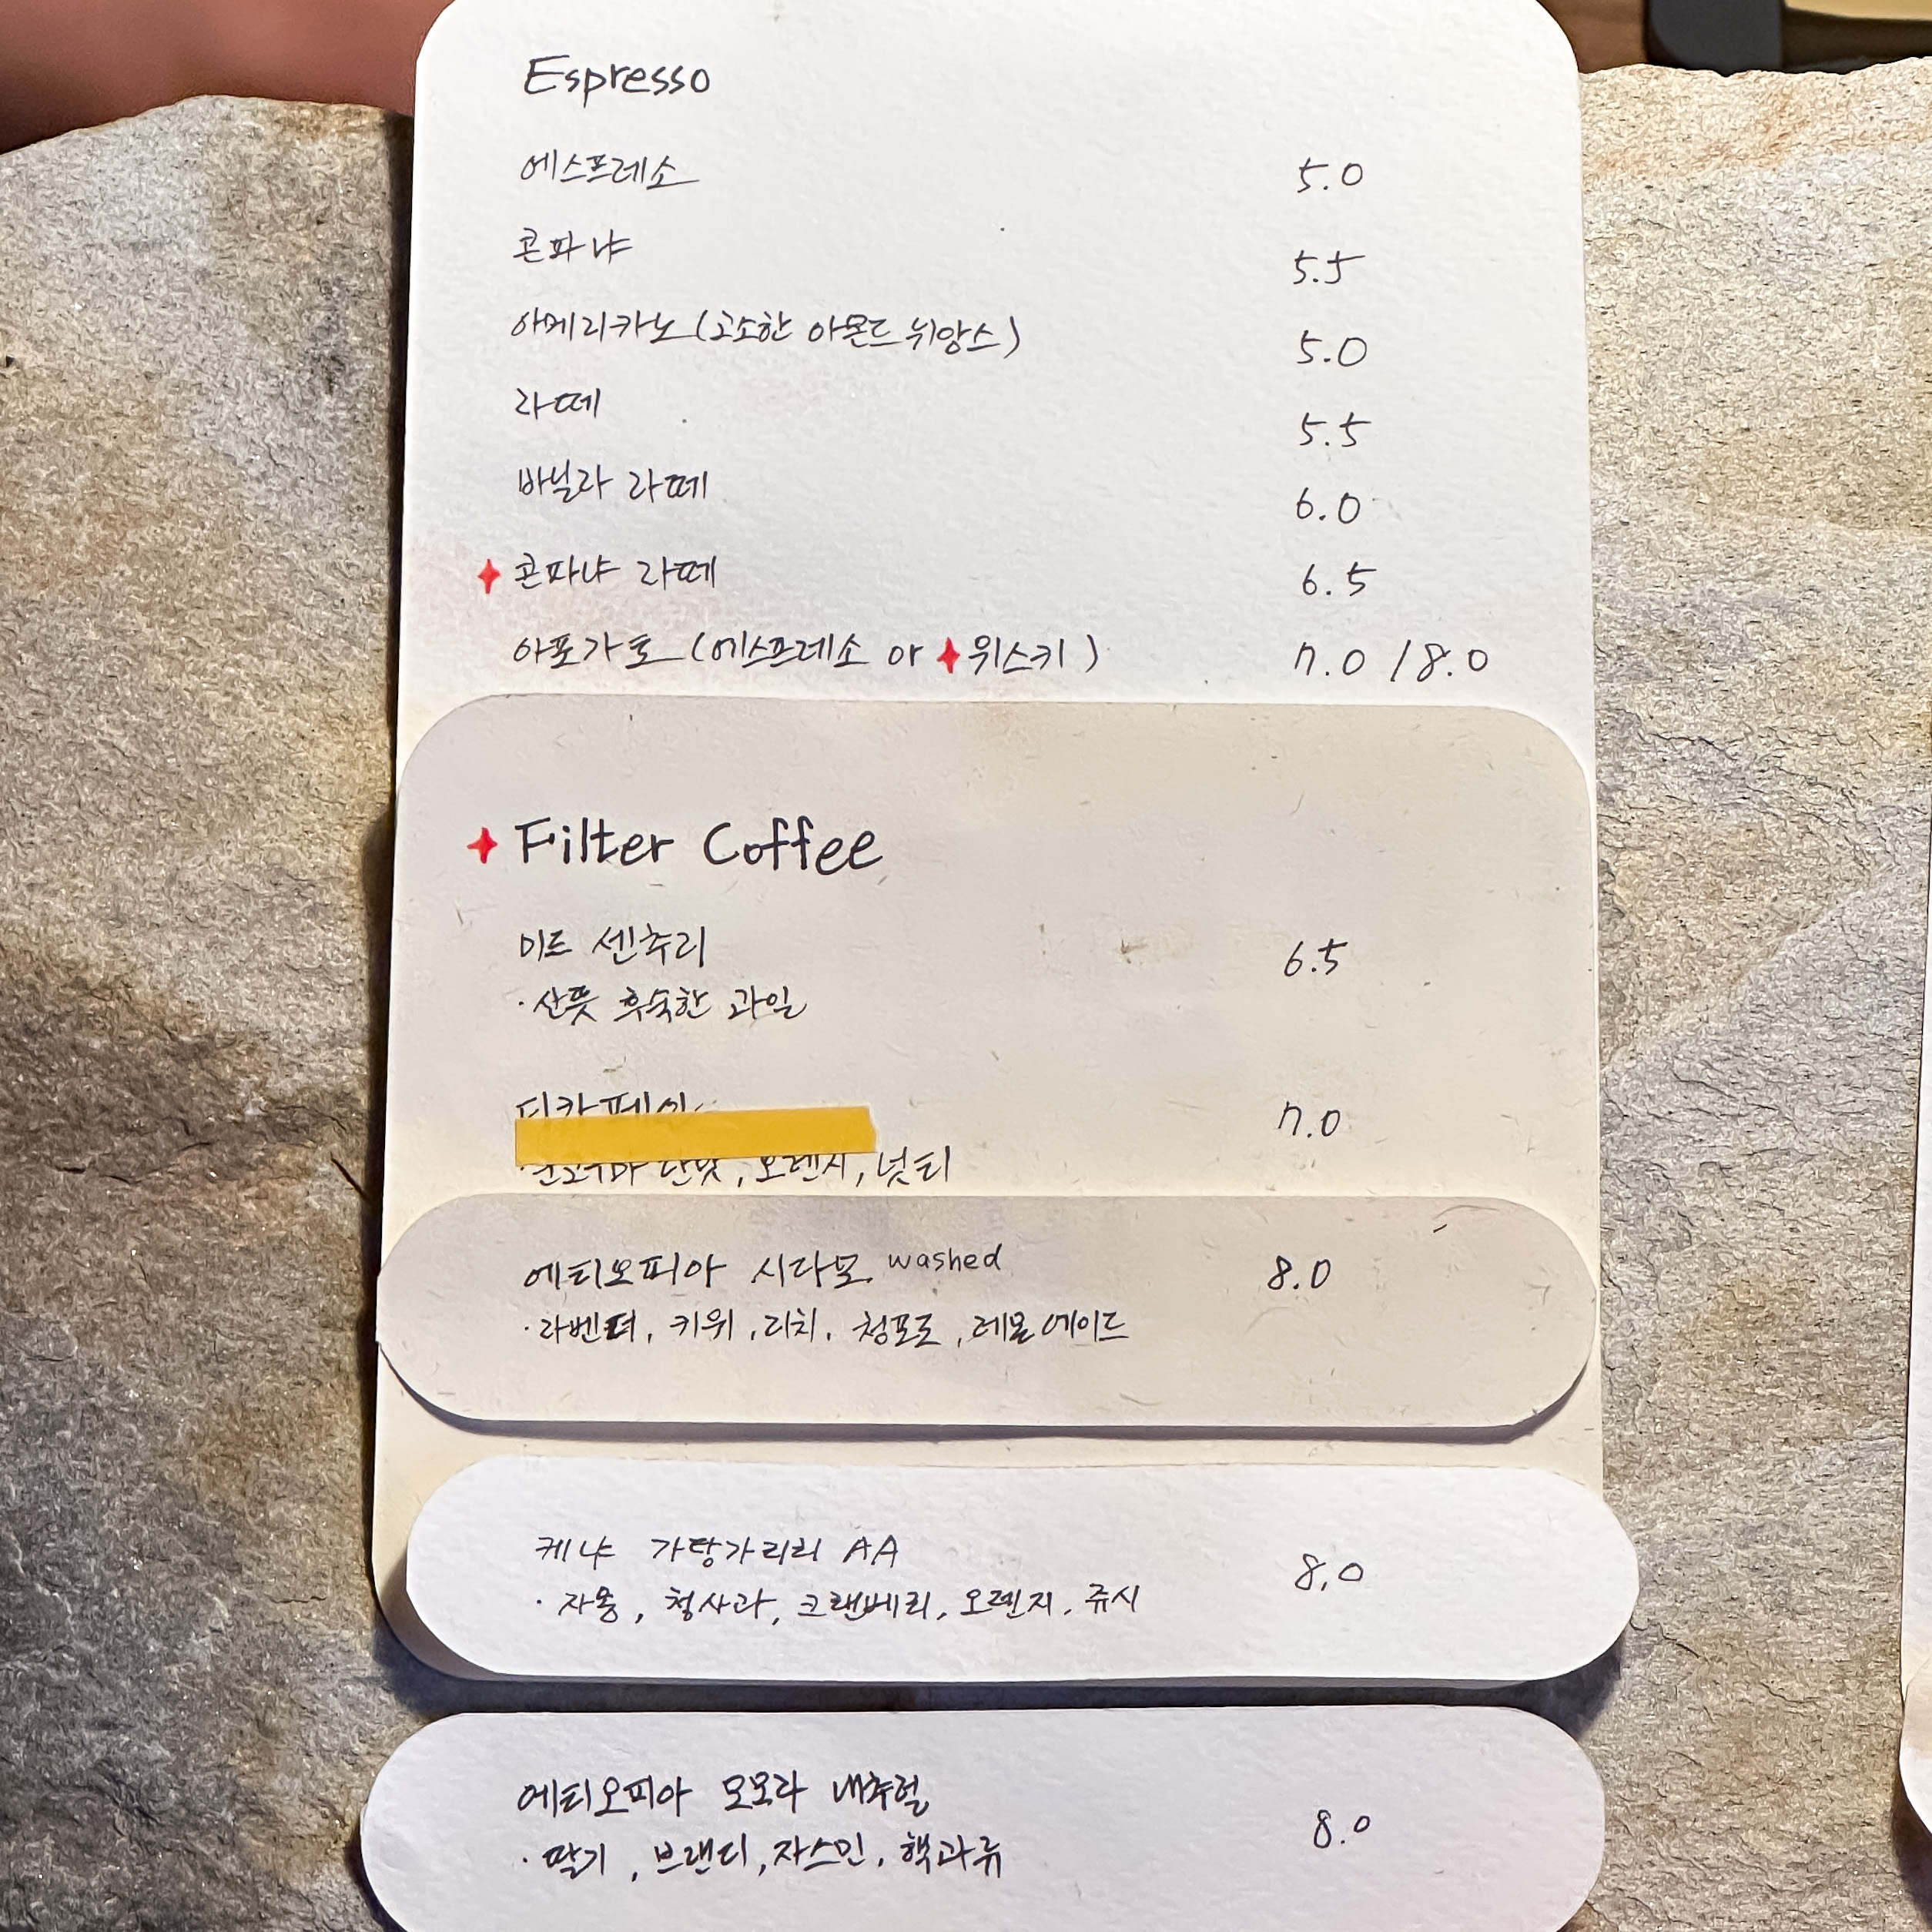 Espresso
에스프레소 5.0
콘파냐 5.5
아메리카노 (고소한 아몬드 뉘앙스) 5.0
라떼 5.5
바닐라 라떼 6.0
콘파냐 라떼 6.5
아포가토 (에스프레소 or 위스키) 7.0 / 8.0
Filter Coffee
미드 센추리 6.5
· 산뜻 후숙한 과일
디카페인 7.0
단맛, 오렌지, 넛티
에티오피아 시다모 washed 8.0
· 라벤더, 키위, 리치, 청포도, 레몬에이드
케냐 가탕가리리 AA 8.0
· 자몽, 청사과, 크랜베리, 오렌지, 쥬시
에티오피아 모모라 내추럴 8.0
· 딸기, 브랜디, 자스민, 핵과류